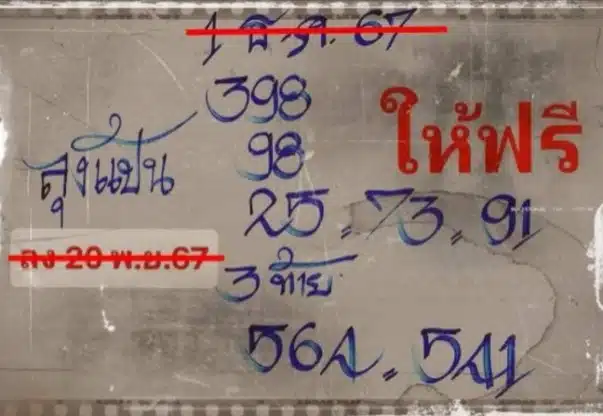 1 ธ.ค. 67
398
ให้ฟรี
98
ลุงแป้น
25 = 73 = 91
ลง 20 พ.ย.67
3 ท้าย
564 = 541